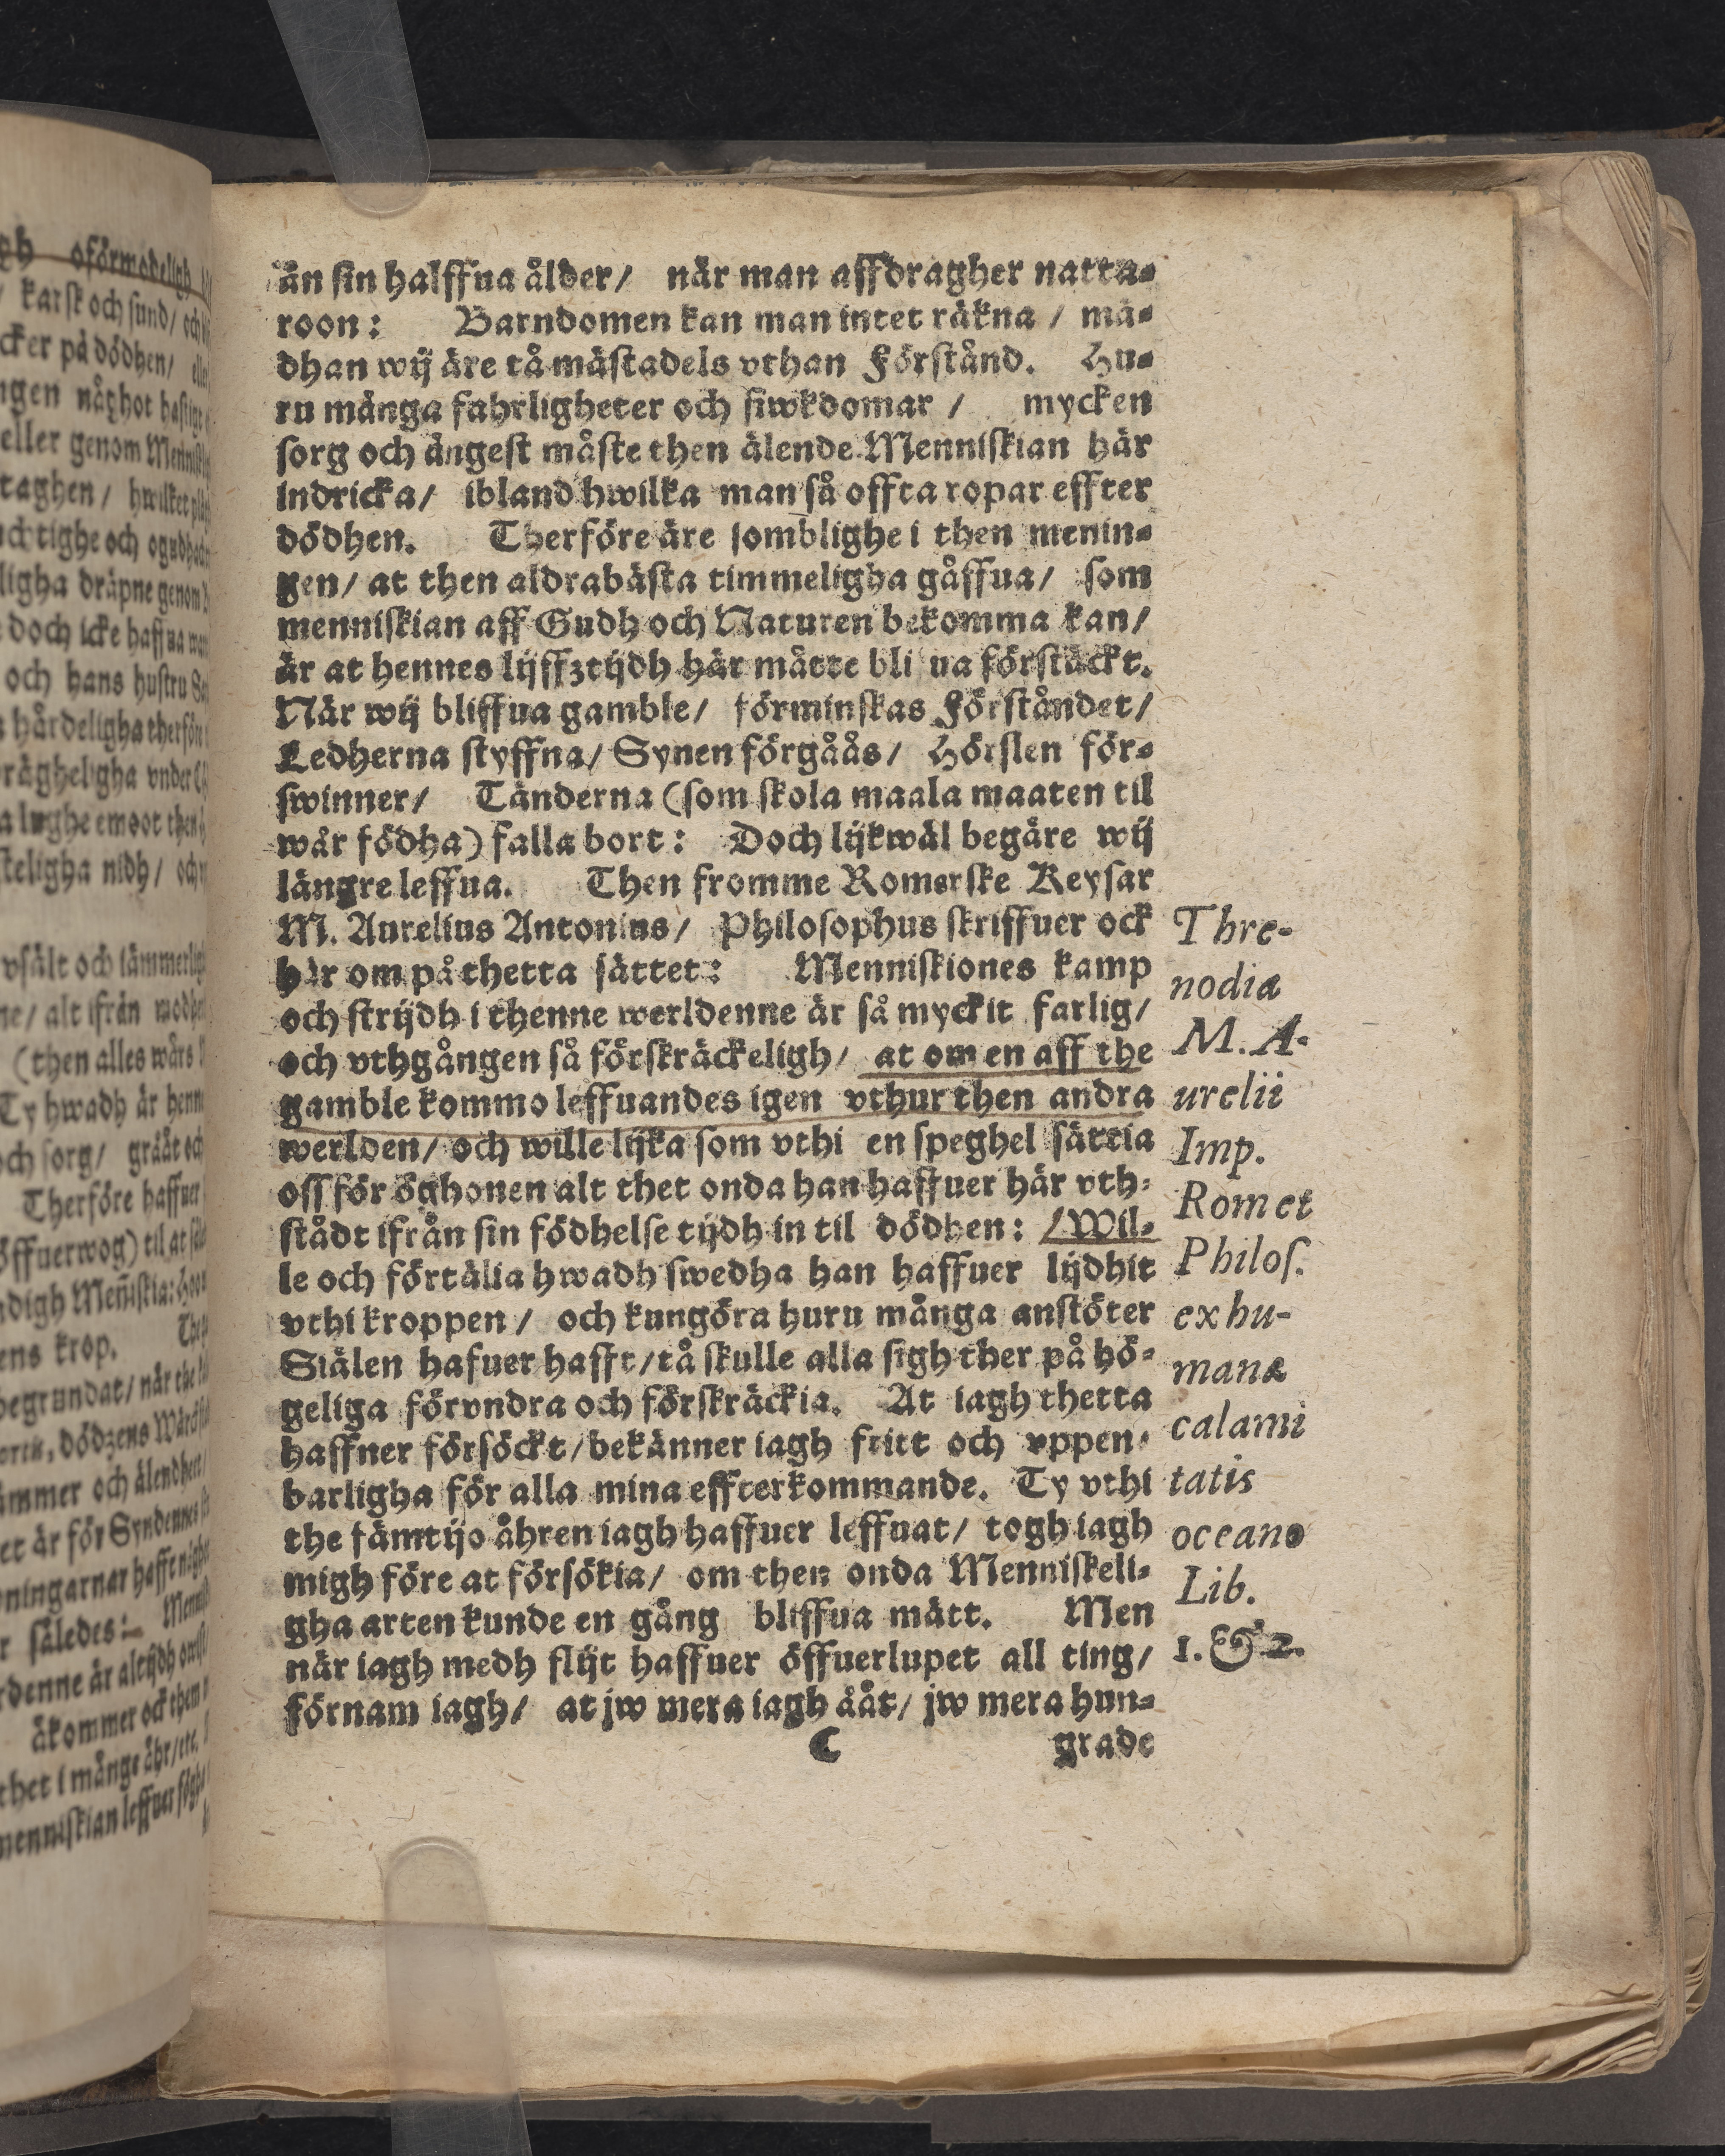 än sin halffua ålder/ när man affdragher natta-
roon: Barndomen kan man intet räkna / mä-
dhan wij äre tå mästadels vthan Förstånd. Hu-
ru många fahrligheter och siwkdomar / mycken
sorg och ängest måste then älende Menniskian här
indricka/ ibland hwilka man så offta ropar effter
dödhen. Therföre äre somblighe i then menin-
gen/ at then aldrabästa timmeligha gåffua/ som
menniskian aff Gudh och Naturen bekomma kan/
är at hennes lijffztijdh här måtte bli ua förstäckt.
När wij bliffua gamble/ förminskas Förståndet/
Ledherna styffna/ Synen förgåås/ Hörslen för-
swinner/ Tänderna (som skola maala maaten til
wår födha) falla bort: Doch lijkwäl begäre wij
längre leffua. Then fromme Romerske Keysar
M. Aurelius Antonius/ Philosophus skriffuer ock
här om på thetta sättet: Menniskiones kamp
och strijdh i thenne werldenne är så myckit farlig/
och vthgången så förskräckeligh/ at om en aff the
gamble kommo leffuandes igen vthur then andra
werlden/ och wille lijka som vthi en speghel sättia
oss för öghonen alt thet onda han haffuer här vth-
stådt ifrån sin födhelse tijdh in til dödhen: /Wil-
le och förtälia hwadh swedha han haffuer lijdhit
vthi kroppen/ och kungöra huru många anstöter
Siälen hafuer hafft/tå skulle alla sigh ther på hö-
geliga förvndra och förskräckia. At iagh thetta
haffner försöckt/bekänner iagh fritt och vppen-
barligha för alla mina effterkommande. Ty vthi
the fämtijo åhren iagh haffuer leffuat/ togh iagh
migh före at försökia/ om then onda Menniskeli-
gha arten kunde en gång bliffua mätt. Men
när iagh medh flijt haffuer öffuerlupet all ting/
förnam iagh/ at jw mera iagh ååt/ jw mera hun-
C grade
Thre-
nodia
M. A-
urelii
Imp.
Rom et
Philos.
ex hu-
manæ
calami
tatis
oceano
Lib.
1. & 2.